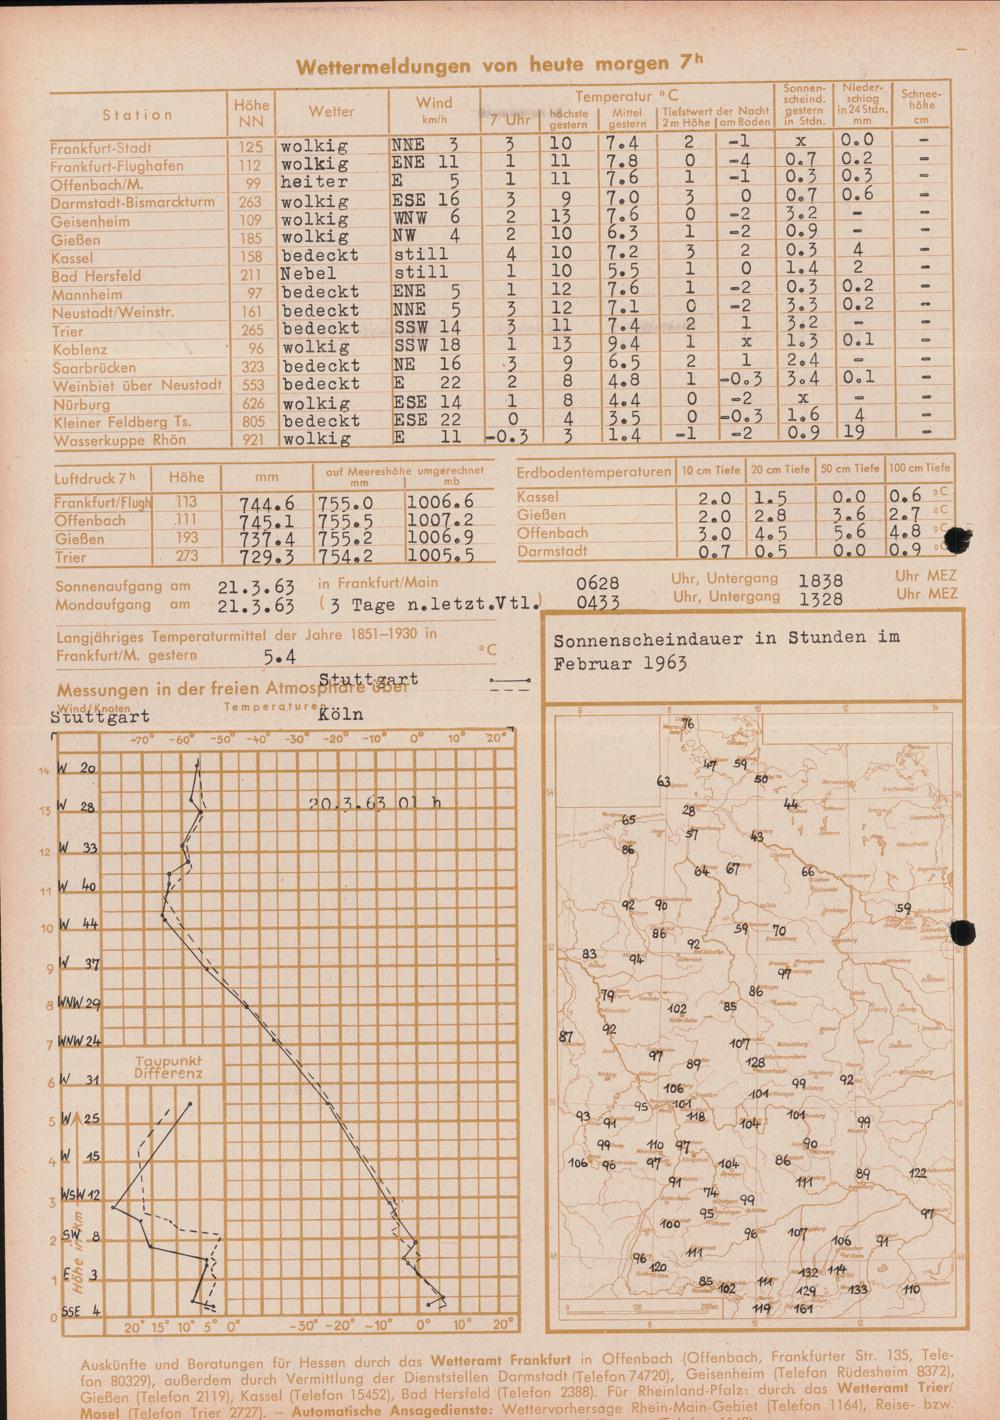 Wettermeldungen von heute morgen 7h
Station Höhe NN Wetter Wind km/h Temperatur °C 7 Uhr höchste gestern Mittel gestern Tiefstwert der Nacht 2 m Höhe am Boden Sonnen-scheind. gestern in Stdn. Nieder-schlag in 24 Stdn. mm Schnee-höhe cm
Frankfurt-Stadt 125 wolkig NNE 3 3 10 7.4 2 -1 x 0.0 -
Frankfurt-Flughafen 112 wolkig ENE 11 1 11 7.8 0 -4 0.7 0.2 -
Offenbach/M. 99 heiter E 5 1 11 7.6 1 -1 0.3 0.3 -
Darmstadt-Bismarckturm 263 wolkig ESE 16 3 9 7.0 3 0 0.7 0.6 -
Geisenheim 109 wolkig WNW 6 2 13 7.6 0 -2 3.2 - -
Gießen 185 wolkig NW 4 2 10 6.3 1 -2 0.9 - -
Kassel 158 bedeckt still 4 10 7.2 3 2 0.3 4 -
Bad Hersfeld 211 Nebel still 1 10 5.5 1 0 1.4 2 -
Mannheim 97 bedeckt ENE 5 1 12 7.6 1 -2 0.3 0.2 -
Neustadt/Weinstr. 161 bedeckt NNE 5 3 12 7.1 0 -2 3.3 0.2 -
Trier 265 bedeckt SSW 14 3 11 7.4 2 1 3.2 - -
Koblenz 96 wolkig SSW 18 1 13 9.4 1 x 1.3 0.1 -
Saarbrücken 323 bedeckt NE 16 3 9 6.5 2 1 2.4 - -
Weinbiet über Neustadt 553 bedeckt E 22 2 8 4.8 1 -0.3 3.4 0.1 -
Nürburg 626 wolkig ESE 14 1 8 4.4 0 -2 x - -
Kleiner Feldberg Ts. 805 bedeckt ESE 22 0 4 3.5 0 -0.3 1.6 4 -
Wasserkuppe Rhön 921 wolkig E 11 -0.3 3 1.4 -1 -2 0.9 19 -
Luftdruck 7h Höhe mm auf Meereshöhe umgerechnet mm mb
Frankfurt/Flugh 113 744.6 755.0 1006.6
Offenbach 111 745.1 755.5 1007.2
Gießen 193 737.4 755.2 1006.9
Trier 273 729.3 754.2 1005.5
Erdbodentemperaturen 10 cm Tiefe 20 cm Tiefe 50 cm Tiefe 100 cm Tiefe
Kassel 2.0 1.5 0.0 0.6 °C
Gießen 2.0 2.8 3.6 2.7 °C
Offenbach 3.0 4.5 5.6 4.8 °C
Darmstadt 0.7 0.5 0.0 0.9 °C
Sonnenaufgang am 21.3.63 in Frankfurt/Main 0628 Uhr, Untergang 1838 Uhr MEZ
Mondaufgang am 21.3.63 (3 Tage n.letzt.Vtl.) 0433 Uhr, Untergang 1328 Uhr MEZ
Langjähriges Temperaturmittel der Jahre 1851–1930 in
Frankfurt/M. gestern 5.4 °C
Messungen in der freien Atmosphäre über
Stuttgart
Köln
Wind/Knoten
Stuttgart
Temperaturen
-70° -60° -50° -40° -30° -20° -10° 0° 10° 20°
20.3.63 01 h
14 W 20
13 W 28
12 W 33
11 W 40
10 W 44
9 W 37
8 WNW 29
7 WNW 24
6 W 31
5 W 25
4 W 15
3 WSW 12
2 SW 8
1 E 3
0 SSE 4
Höhe in km
Taupunkt
Differenz
20° 15° 10° 5° 0° -30° -20° -10° 0° 10° 20°
Sonnenscheindauer in Stunden im
Februar 1963
6 8 10 12 14
76
47 59
63 50
28 44
65
57 43
86
64 67 66
92 90 59
86 59 70
92
83 94
97
79 86
102 85
92
87 107
97 89 128
106 99 92
95 101 104
93 91 118 104 101 99
99 110 97 90
106 96 97 104 86
91 111 89 122
74 99
95 97
100 96 107 106 91
96 111
120 132 114
85 102 111 129 133 110
119 161
0 100 200km
8 10 12
Auskünfte und Beratungen für Hessen durch das Wetteramt Frankfurt in Offenbach (Offenbach, Frankfurter Str. 135, Tele-
fon 80329), außerdem durch Vermittlung der Dienststellen Darmstadt (Telefon 74720), Geisenheim (Telefon Rüdesheim 8372),
Gießen (Telefon 2119), Kassel (Telefon 15452), Bad Hersfeld (Telefon 2388). Für Rheinland-Pfalz: durch das Wetteramt Trier/
Mosel (Telefon Trier 2727). — Automatische Ansagedienste: Wettervorhersage Rhein-Main-Gebiet (Telefon 1164), Reise- bzw.